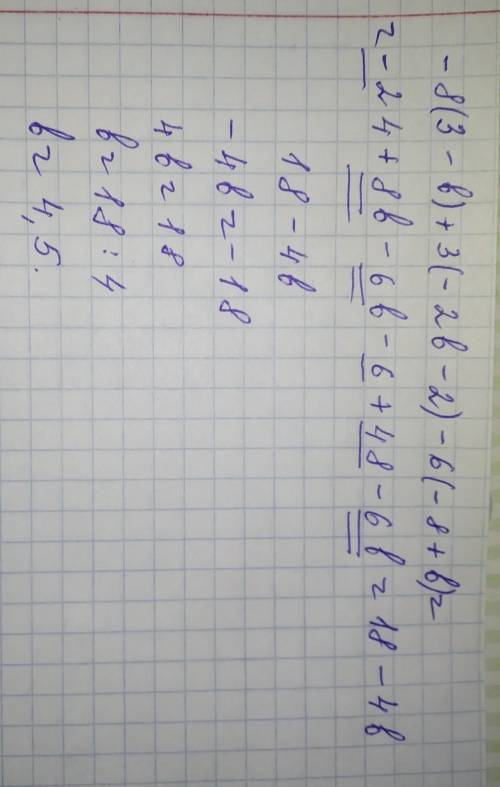 -8(3-b)+3(-2b-2)-6(-8+b)=
=-24+8b-6b-6+48-6b=18-4b
18-4b
-4b=-18
4b=18
b=18:4
b=4,5.